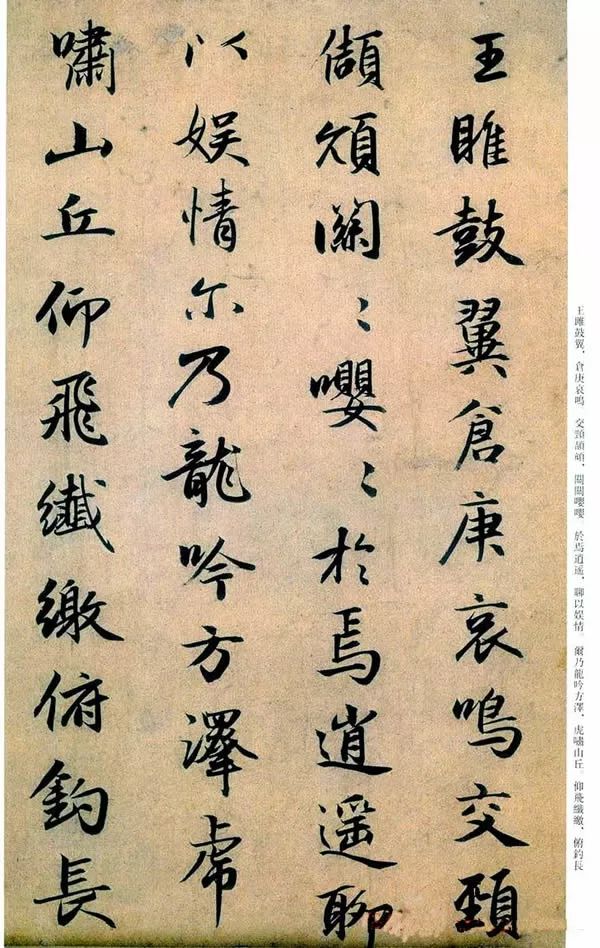 王雎鼓翼倉庚哀鳴交頸
頡頏關〻嚶〻於焉逍遥聊
以娱情尓乃龍吟方澤虎
嘯山丘仰飛纖繳俯釣長
王雎鼓翼，倉庚哀鳴，交頸頡頏，關關嚶嚶。於焉逍遥，聊以娱情。爾乃龍吟方澤，虎嘯山丘。仰飛纖繳，俯釣長